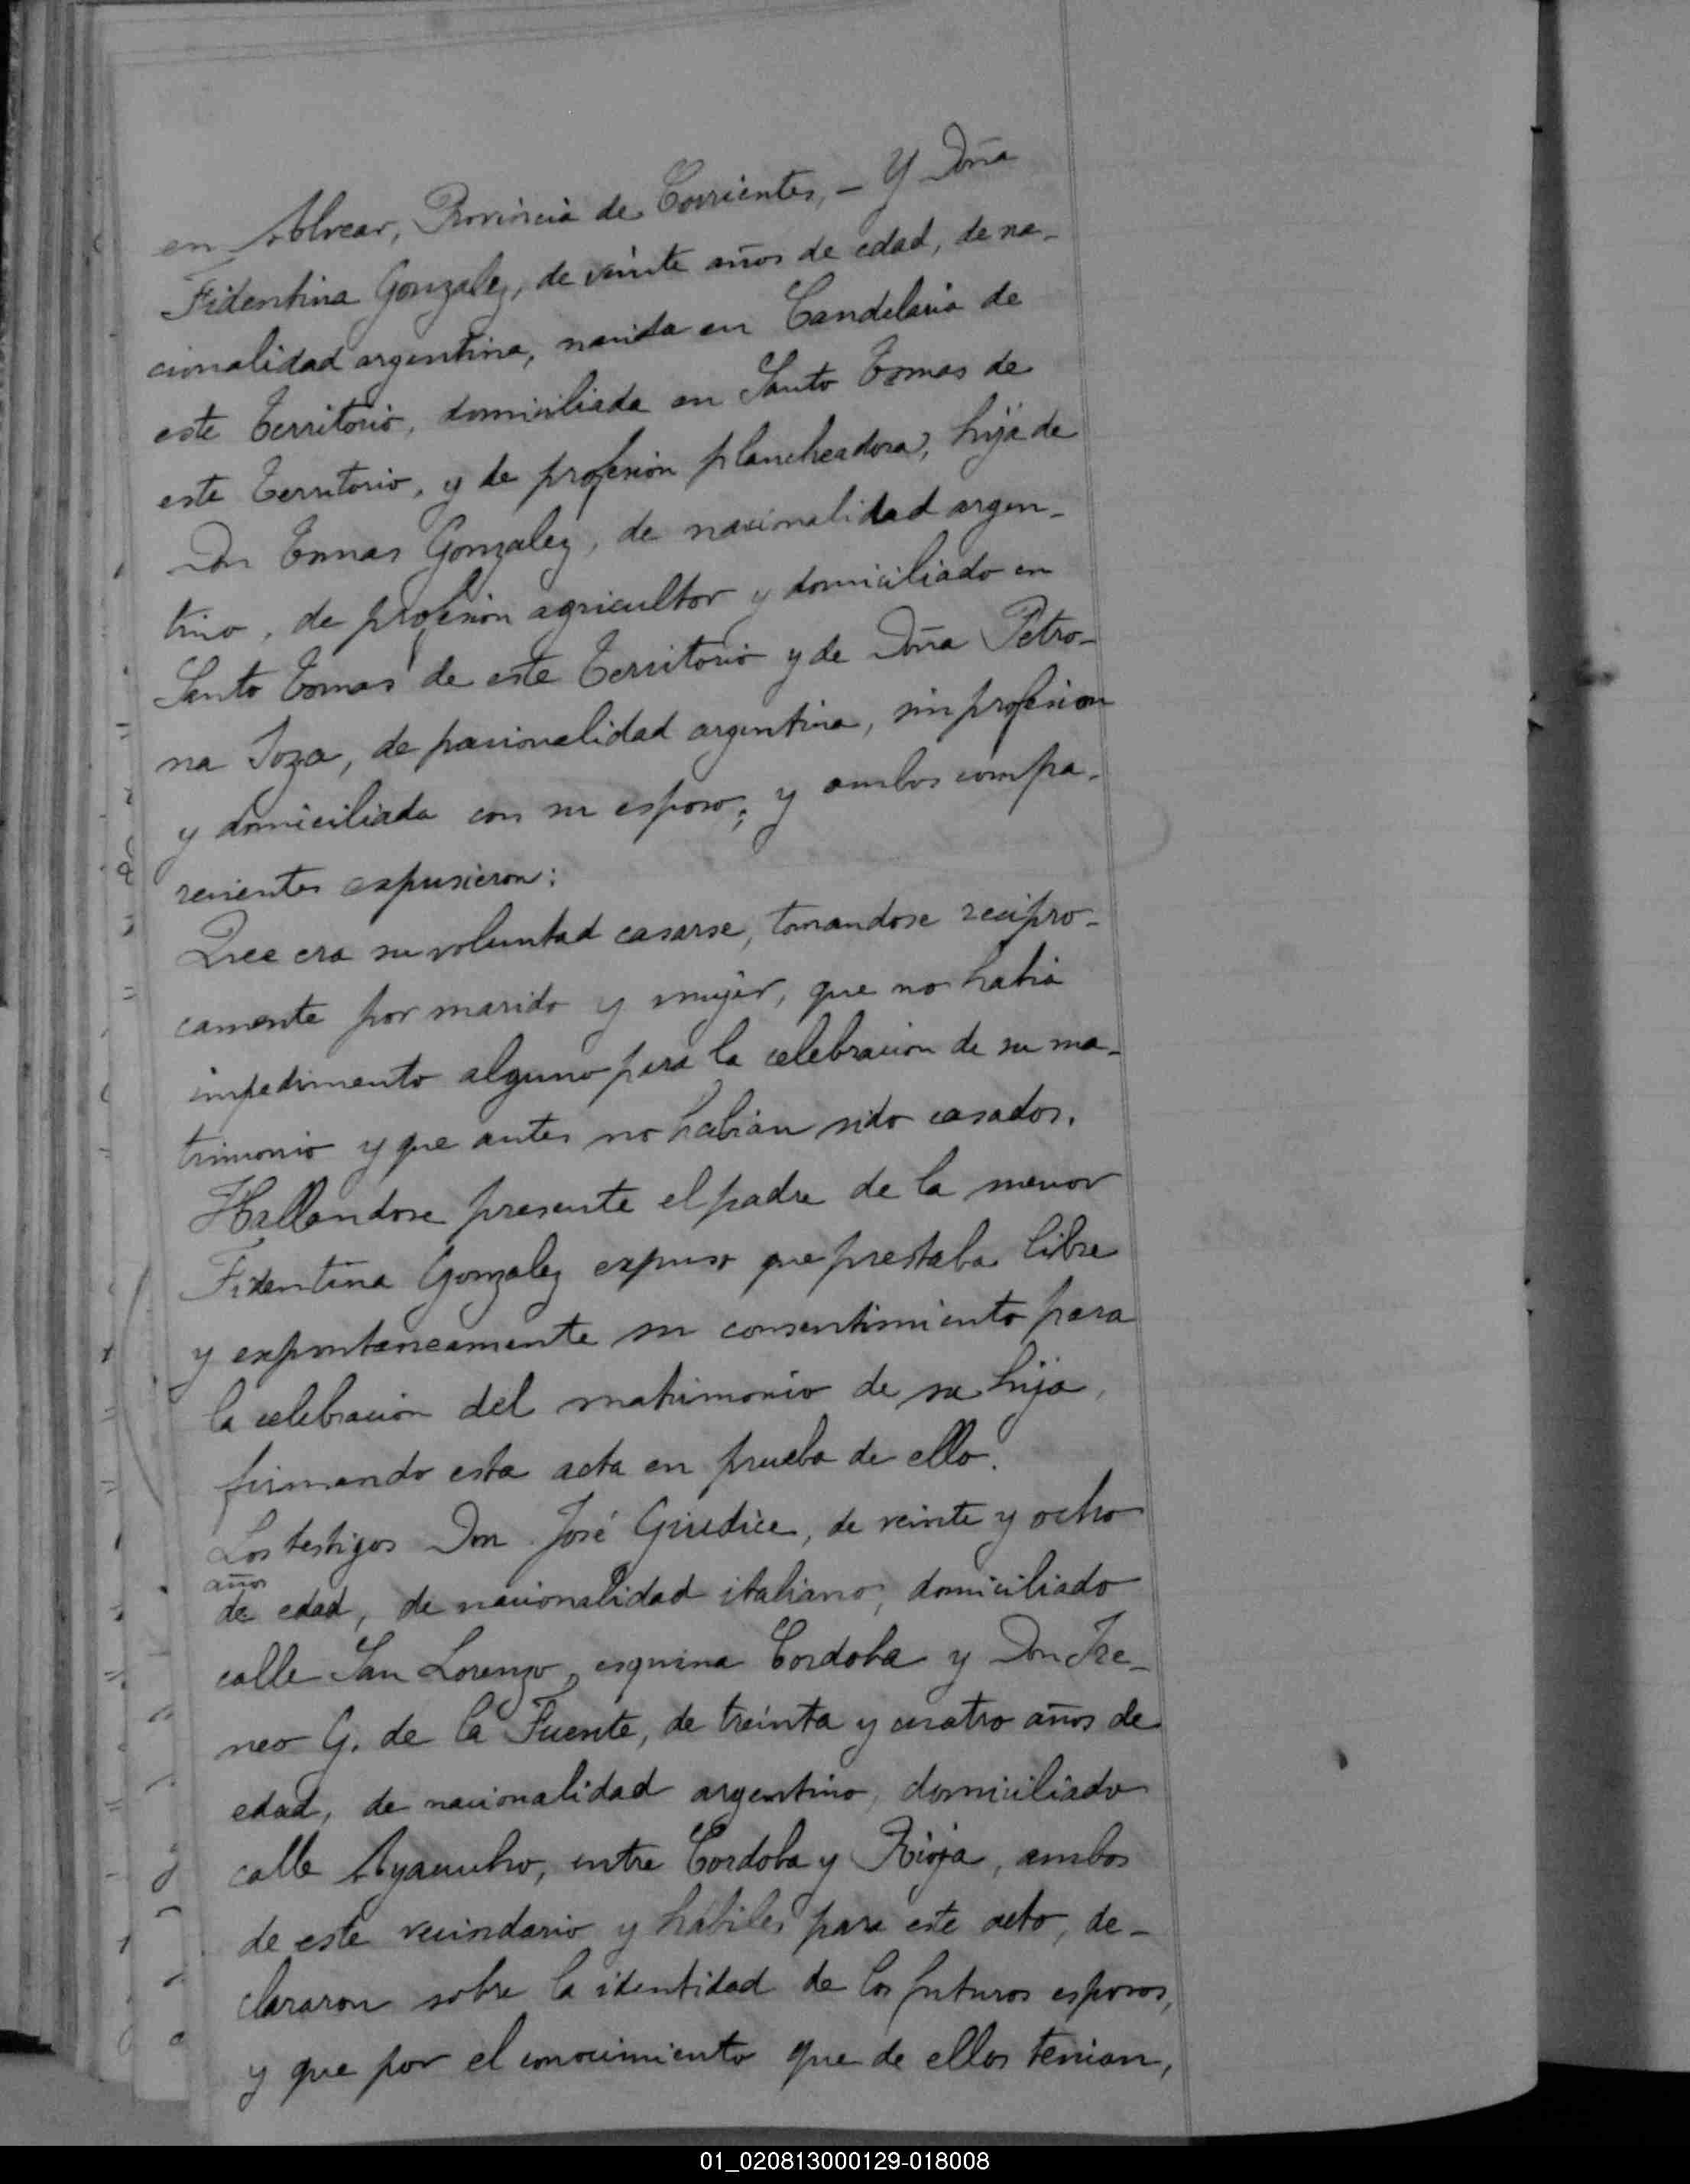 en Alvear, Provincia de Corrientes, – Y Doña
Fidentina Gonzalez, de veinte años de edad, de na-
cionalidad argentina, nacida en Candelaria de
este Territorio, domiciliada en Santo Tomas de
este Territorio, y de profesión plancheadora, hija de
Don Tomas Gonzalez, de nacionalidad argen-
tino, de profesión agricultor y domiciliado en
Santo Tomas de este Territorio y de Doña Petro-
na Soza, de nacionalidad argentina, sin profesion
y domiciliada con su esposo; y ambos compa-
recientes expusieron:
Que era su voluntad casarse, tomandose recipro-
camente por marido y mujer, que no habia
impedimento alguno para la celebracion de su ma-
trimonio y que antes no habian sido casados.
Hallandose presente el padre de la menor
Fidentina Gonzalez expuso que prestaba libre
y expontaneamente su consentimiento para
la celebracion del matrimonio de su hija,
firmando esta acta en prueba de ello.
Los testigos Don José Giudice, de veinte y ocho
años
de edad, de nacionalidad italiano, domiciliado
calle San Lorenzo, esquina Cordoba y Don Ire-
neo G. de la Fuente, de treinta y cuatro años de
edad, de nacionalidad argentino, domiciliado
calle Ayacucho, entre Cordoba y Rioja, ambos
de este vecindario y hábiles para este acto, de-
clararon sobre la identidad de los futuros esposos,
y que por el conocimiento que de ellos tenian,
01_020813000129-018008